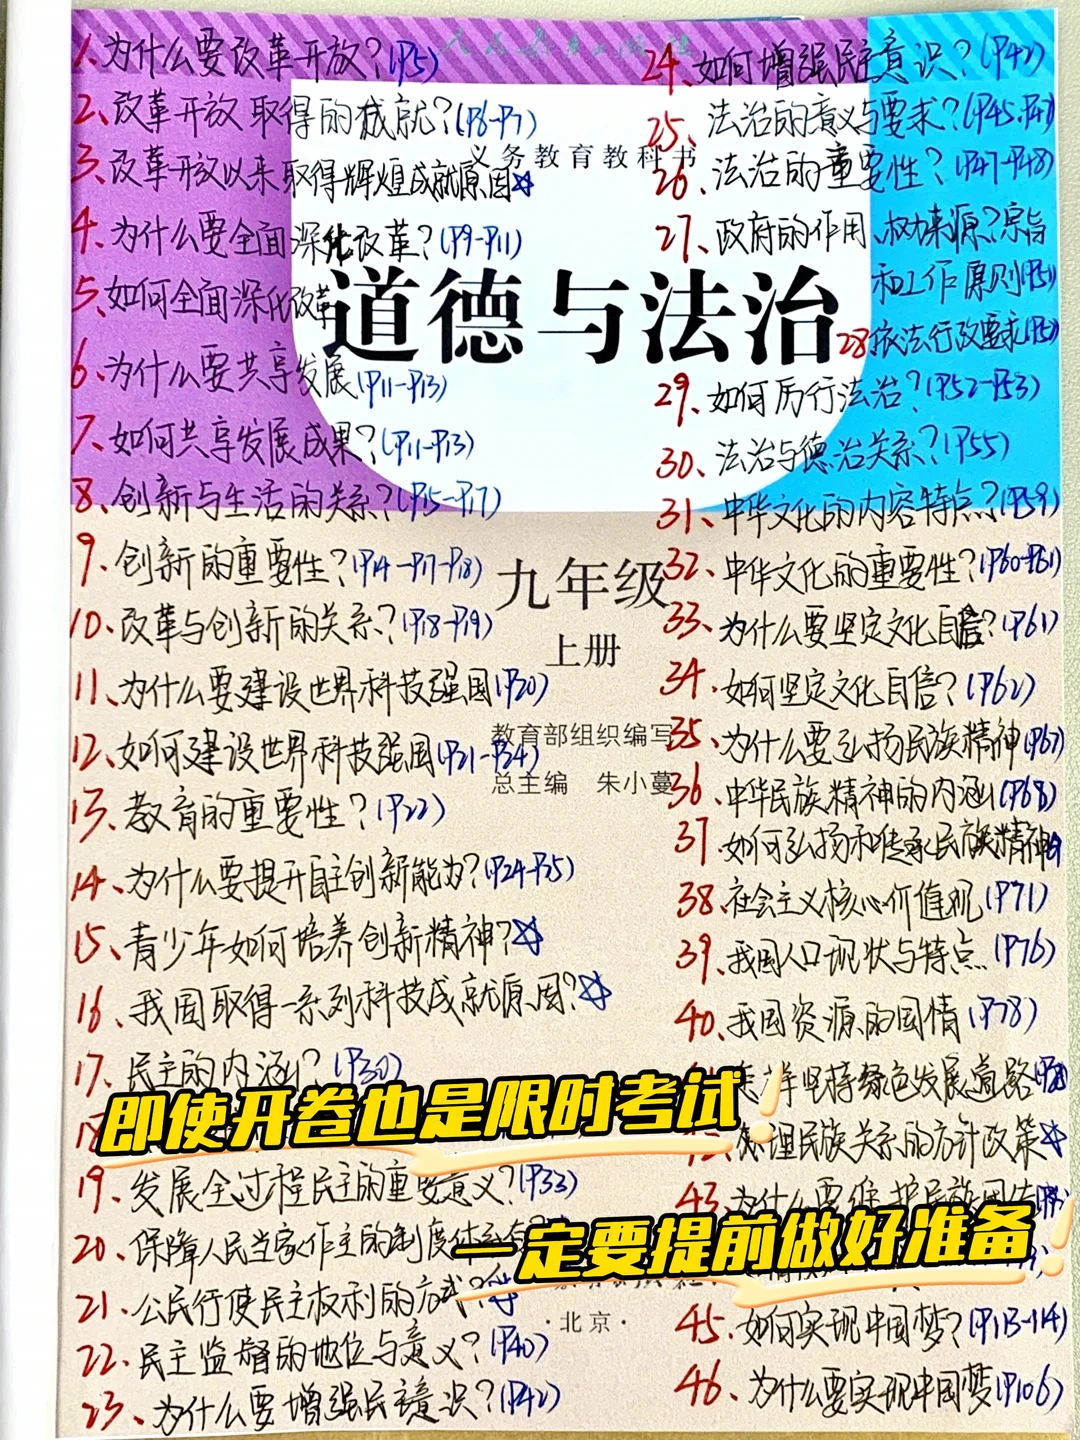 人民教育出版社
1、为什么要改革开放?(P5)
2、改革开放取得的成就?(P6-P7)
3、改革开放以来取得辉煌成就原因☆
4、为什么要全面深化改革?(P9-P11)
5、如何全面深化改革
6、为什么要共享发展(P11-P13)
7、如何共享发展成果?(P11-P13)
8、创新与生活的关系?(P15-P17)
9、创新的重要性?(P14-P17-P18)
10、改革与创新的关系?(P18-P19)
11、为什么要建设世界科技强国(P20)
12、如何建设世界科技强国(P21-P24)
13、教育的重要性?(P22)
14、为什么要提升自主创新能力?(P24-P25)
15、青少年如何培养创新精神?☆
16、我国取得一系列科技成就原因?☆
17、民主的内涵?(P30)
18、
19、发展全过程民主的重要意义?(P33)
20、保障人民当家作主的制度体系
21、公民行使民主权利的方式?
22、民主监督的地位与意义?(P40)
23、为什么要增强民主意识?(P42)
义务教育教科书
道德与法治
九年级
上册
教育部组织编写
总主编 朱小蔓
·北京·
24、如何增强民主意识?(P42)
25、法治的意义与要求?(P45-P47)
26、法治的重要性?(P47-P48)
27、政府的作用、权力来源?宗旨
和工作原则(P51)
28依法行政要求(P52)
29、如何厉行法治?(P52-P53)
30、法治与德治关系?(P55)
31、中华文化的内容特点?(P59)
32、中华文化的重要性?(P60-P61)
33、为什么要坚定文化自信?(P61)
34、如何坚定文化自信?(P62)
35、为什么要弘扬民族精神(P67)
36、中华民族精神的内涵(P68)
37、如何弘扬和传承民族精神
38、社会主义核心价值观(P71)
39、我国人口现状与特点(P76)
40、我国资源的国情(P78)
坚持绿色发展道路
理民族关系的方针政策☆
43、为什么要维护民族团结
45、如何实现中国梦?(P113-114)
46、为什么要实现中国梦(P106)
即使开卷也是限时考试!
一定要提前做好准备!